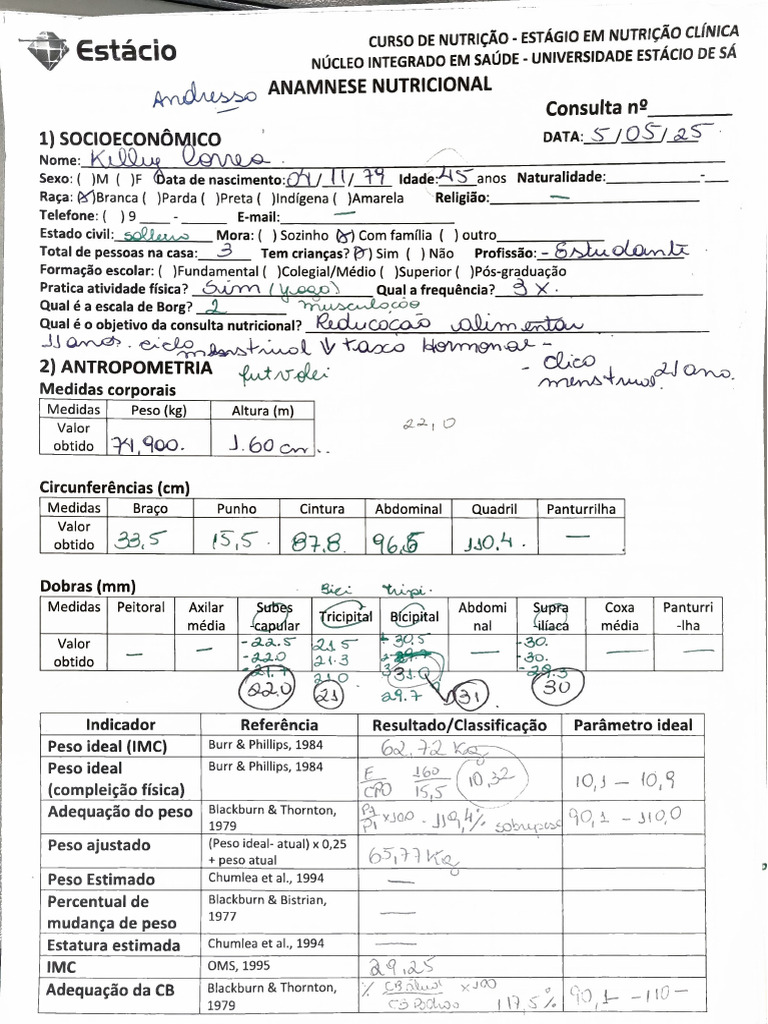 Estácio
CURSO DE NUTRIÇÃO - ESTÁGIO EM NUTRIÇÃO CLÍNICA
NÚCLEO INTEGRADO EM SAÚDE - UNIVERSIDADE ESTÁCIO DE SÁ
ANAMNESE NUTRICIONAL
Andressa
Consulta nº
1) SOCIOECONÔMICO
DATA: 5/05/25
Nome: Killy Correa
Sexo: ( )M ( )F Data de nascimento: 04/11/79 Idade: 45 anos Naturalidade: -
Raça: (x)Branca ( )Parda ( )Preta ( )Indígena ( )Amarela Religião: —
Telefone: ( ) 9 - E-mail: —
Estado civil: solteiro Mora: ( ) Sozinho (x) Com família ( ) outro
Total de pessoas na casa: 3 Tem crianças? (x) Sim ( ) Não Profissão: - Estudante
Formação escolar: ( )Fundamental ( )Colegial/Médio ( )Superior ( )Pós-graduação
Pratica atividade física? Sim (yoga) Qual a frequência? 3 x.
Qual é a escala de Borg? 2 musculação
Qual é o objetivo da consulta nutricional? Reducação alimentar
11 anos. ciclo menstrual ↓ taxa Hormonal -
2) ANTROPOMETRIA futvolei
- Clico menstrual 21 ano.
Medidas corporais
Medidas Peso (kg) Altura (m)
Valor obtido 74,900. 1.60 cm..
22,0
Circunferências (cm)
Medidas Braço Punho Cintura Abdominal Quadril Panturrilha
Valor obtido 33,5 15,5. 87.8. 96,5 110.4. —
Dobras (mm)
Bici tripi.
Medidas Peitoral Axilar média Subes-capular Tricipital Bicipital Abdominal Supra-ilíaca Coxa média Panturri-lha
Valor obtido — — -22.5 21.5 30.5 — -30. — —
-22.0 21.3 -30.
21.0 31.0 -29.3
22.0 21 29.7 31 30
Indicador Referência Resultado/Classificação Parâmetro ideal
Peso ideal (IMC) Burr & Phillips, 1984 62,72 Kg
Peso ideal (compleição física) Burr & Phillips, 1984 E/CPO 160/15,5 10,32 10,1 – 10,9
Adequação do peso Blackburn & Thornton, 1979 PA/PI x100 - 119,4% sobrepeso 90,1 – 110,0
Peso ajustado (Peso ideal- atual) x 0,25 + peso atual 65,77 Kg
Peso Estimado Chumlea et al., 1994 —
Percentual de mudança de peso Blackburn & Bistrian, 1977 —
Estatura estimada Chumlea et al., 1994 —
IMC OMS, 1995 29,25
Adequação da CB Blackburn & Thornton, 1979 % CB Atual/CB Padrão x100 117,5% 90,1 - -110 -